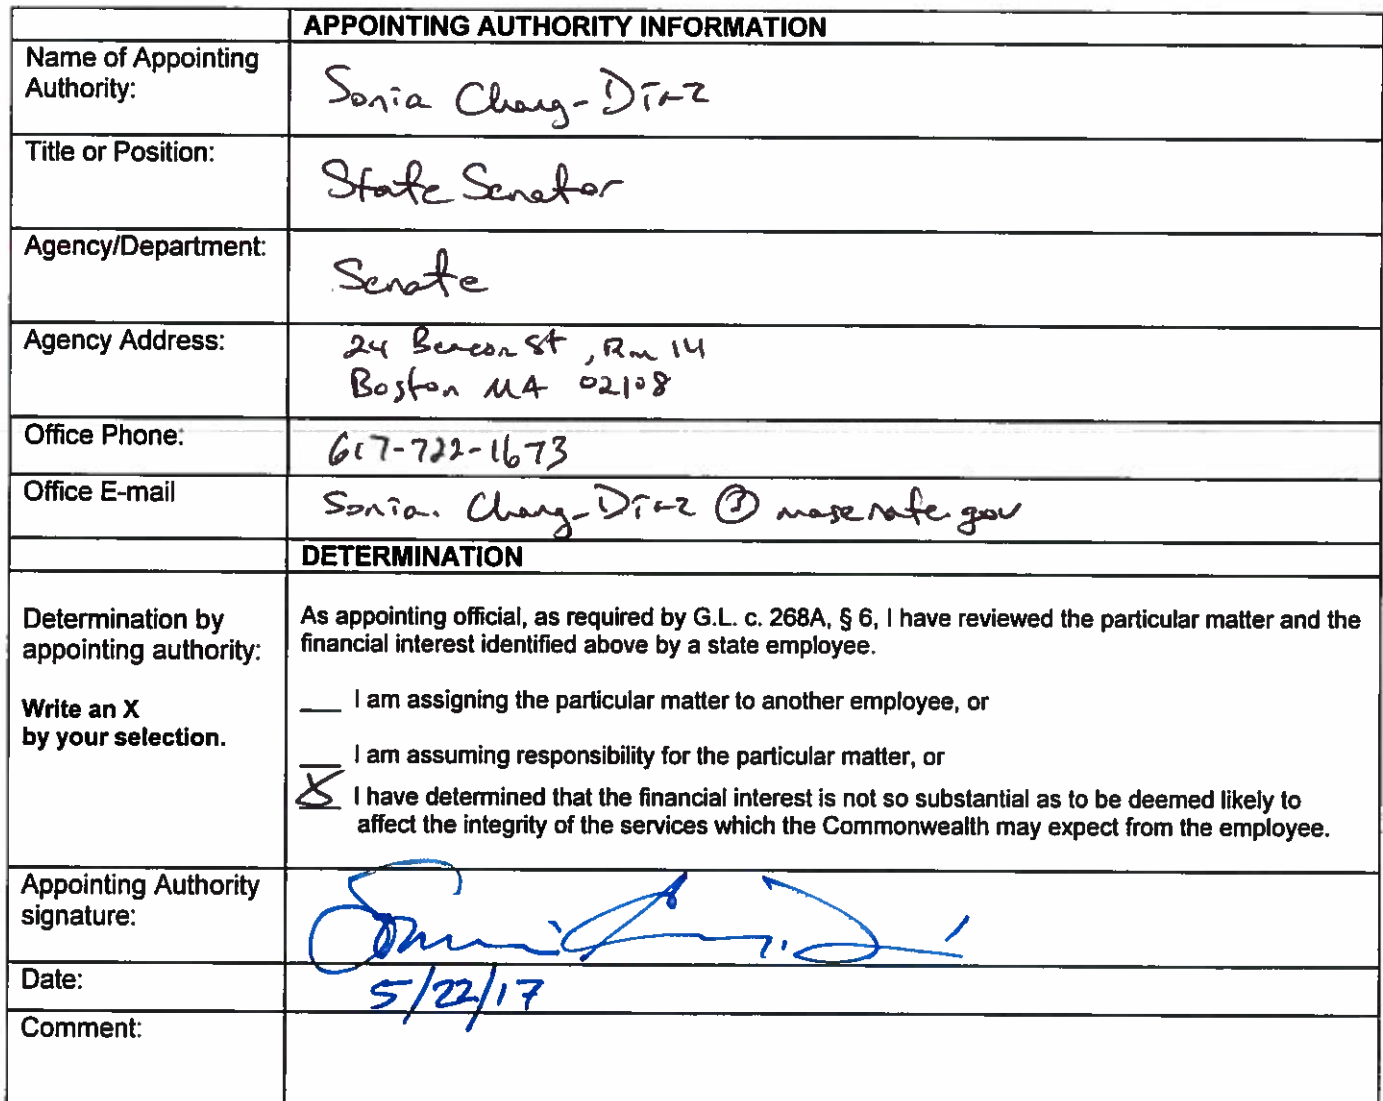 APPOINTING AUTHORITY INFORMATION
Name of Appointing
Authority:
Sonia Chang-Díaz
Title or Position:
State Senator
Agency/Department:
Senate
Agency Address:
24 Beacon St, Rm 14
Boston MA 02108
Office Phone:
617-722-1673
Office E-mail
Sonia.Chang-Diaz@masenate.gov
DETERMINATION
Determination by
appointing authority:
Write an X
by your selection.
As appointing official, as required by G.L. c. 268A, § 6, I have reviewed the particular matter and the
financial interest identified above by a state employee.
___ I am assigning the particular matter to another employee, or
___ I am assuming responsibility for the particular matter, or
X I have determined that the financial interest is not so substantial as to be deemed likely to
affect the integrity of the services which the Commonwealth may expect from the employee.
Appointing Authority
signature:
Date:
5/22/17
Comment: